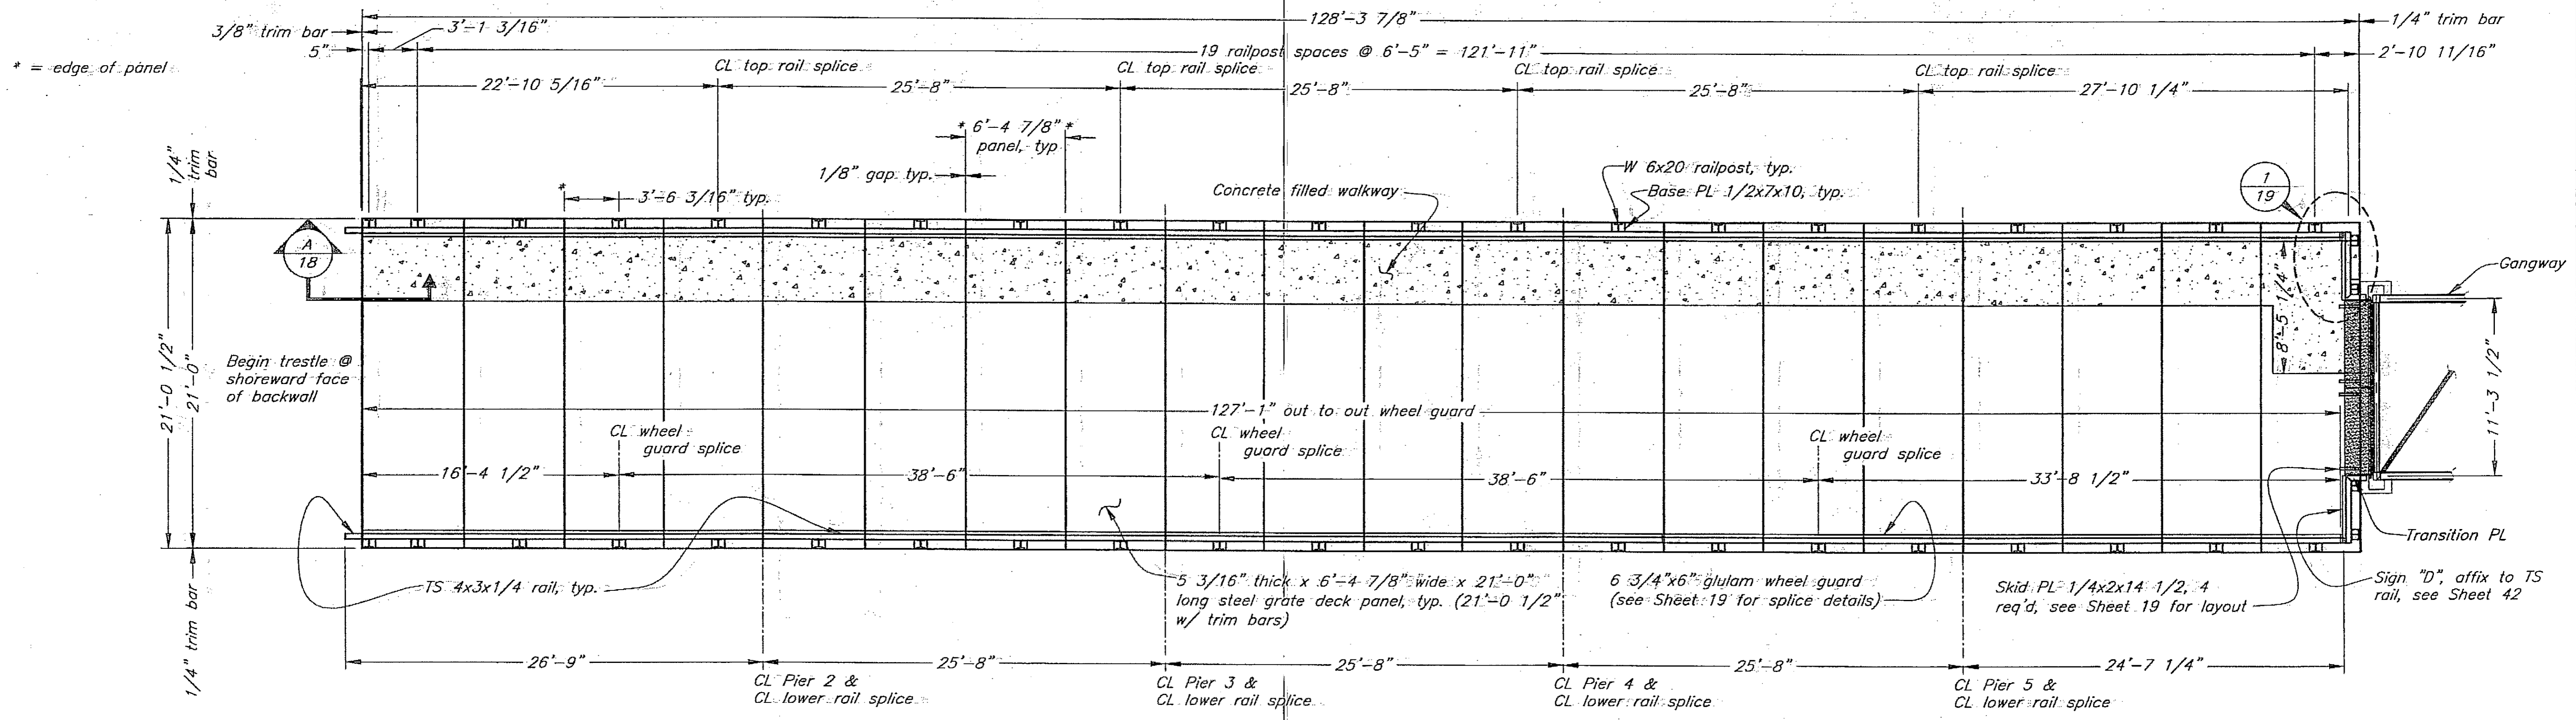 128'-3 7/8"
3/8" trim bar
3'-1 3/16"
1/4" trim bar
5"
19 railpost spaces @ 6'-5" = 121'-11"
2'-10 11/16"
* = edge of panel
CL top rail splice
CL top rail splice
CL top rail splice
CL top rail splice
22'-10 5/16"
25'-8"
25'-8"
25'-8"
27'-10 1/4"
* 6'-4 7/8" *
panel, typ
1/4"
trim
bar
1/8" gap typ.
*
3'-6 3/16" typ.
Concrete filled walkway
W 6x20 railpost, typ.
Base PL 1/2x7x10, typ.
1
19
A
18
Gangway
8'-5 1/4"
21'-0 1/2"
21'-0"
Begin trestle @
shoreward face
of backwall
11'-3 1/2"
127'-1" out to out wheel guard
CL wheel
guard splice
CL wheel
guard splice
CL wheel
guard splice
16'-4 1/2"
38'-6"
38'-6"
33'-8 1/2"
Transition PL
TS 4x3x1/4 rail, typ.
5 3/16" thick x 6'-4 7/8" wide x 21'-0"
long steel grate deck panel, typ. (21'-0 1/2"
w/ trim bars)
6 3/4"x6" glulam wheel guard
(see Sheet 19 for splice details)
Skid PL 1/4x2x14 1/2, 4
req'd, see Sheet 19 for layout
Sign "D", affix to TS
rail, see Sheet 42
1/4" trim bar
26'-9"
25'-8"
25'-8"
25'-8"
24'-7 1/4"
CL Pier 2 &
CL lower rail splice
CL Pier 3 &
CL lower rail splice
CL Pier 4 &
CL lower rail splice
CL Pier 5 &
CL lower rail splice